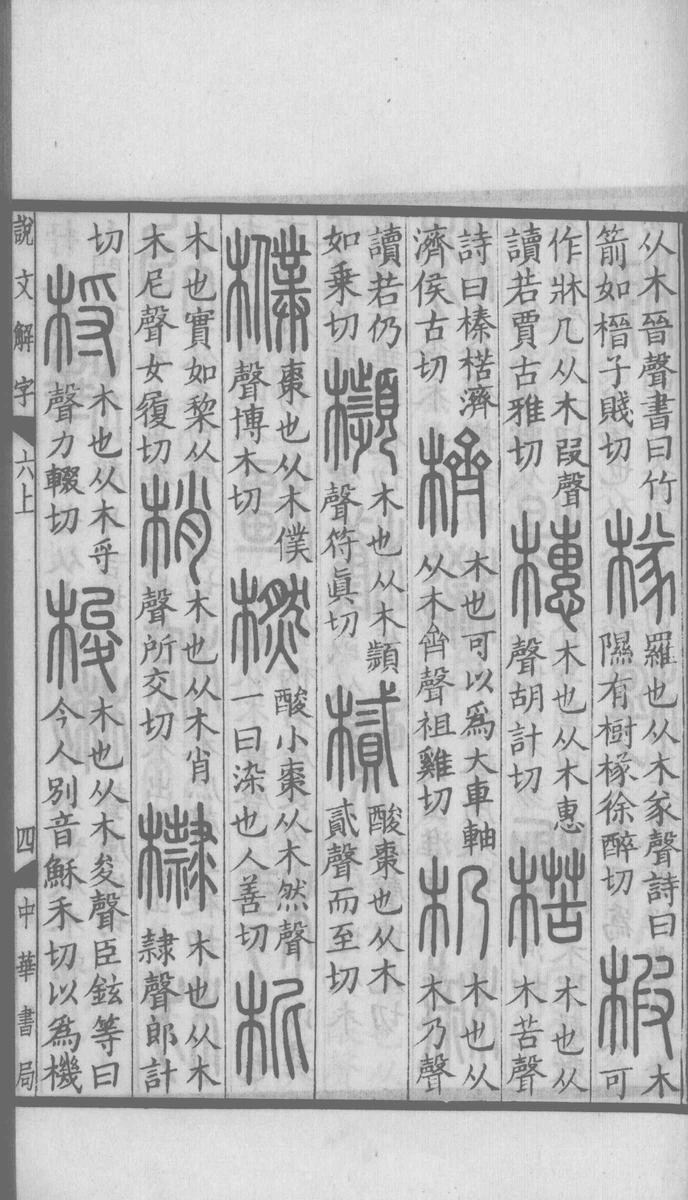 从木晉聲書曰竹
箭如榗子賤切
羅也从木㒸聲詩曰
隰有樹𣔾徐醉切
椵
木
可
作牀几从木叚聲
讀若賈古雅切
橞
木也从木惠
聲胡計切
楛
木也从
木苦聲
詩曰榛楛濟
濟侯古切
櫅
木也可以爲大車軸
从木齊聲祖雞切
木也从
木乃聲
讀若仍
如乘切
櫇
木也从木頻
聲符眞切
樲
酸棗也从木
貳聲而至切
樸
棗也从木僕
聲博木切
橪
酸小棗从木然聲
一曰染也人善切
柅
木也實如棃从
木尼聲女履切
梢
木也从木肖
聲所交切
木也从木
隸聲郎計
切
木也从木寽
聲力輟切
梭
木也从木夋聲臣鉉等曰
今人別音穌禾切以爲機
說文解字 六上 四 中華書局